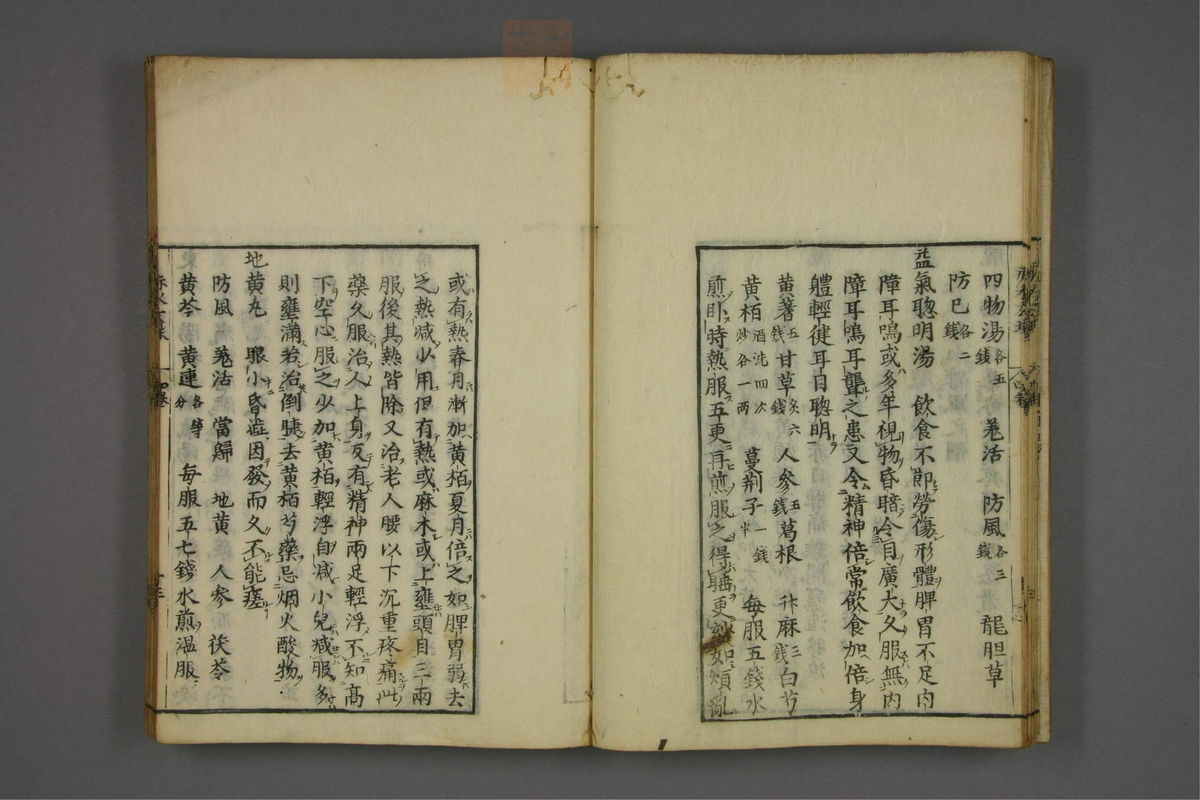 四物湯各五錢 羗活 防風各三錢 龍胆草
防巳各二錢
益氣聰明湯 飲食不節勞傷形體脾胃不足内
障耳鳴或多年視物昏暗令目廣大久服無内
障耳鳴耳聾之患又令精神倍常飲食加倍身
軆輕徤耳目聰明
黄蓍五錢甘草炙六錢人參五錢葛根 升麻三錢白芍
黄栢酒洗四次炒各一兩 蔓荆子一錢半 每服五錢水
煎臥時熱服五更再煎服之得睡更玅如煩亂
或有熱春月漸加黄栢夏月倍之如脾胃弱去
之熱减少用但有熱或麻木或上壅頭目三兩
服後其熱皆除又治老人腰以下沉重疼痛此
藥久服治人上身反有精神兩足輕浮不知高
下空心服之少加黄栢輕浮自减小兒减服多
則壅滿若治倒睫去黄栢芍藥忌烟火酸物
地黄丸 眼小昏澁因發而久不能瘥
防風 羗活 當歸 地黄 人參 茯苓
黄芩 黄連各等分 每服五七錢水煎温服